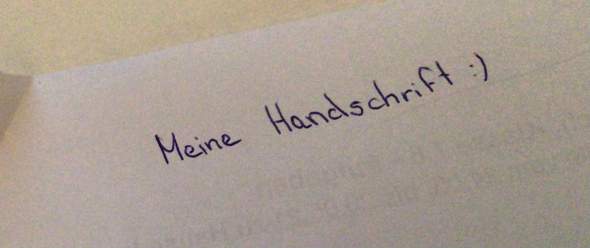 Meine Handschrift :)